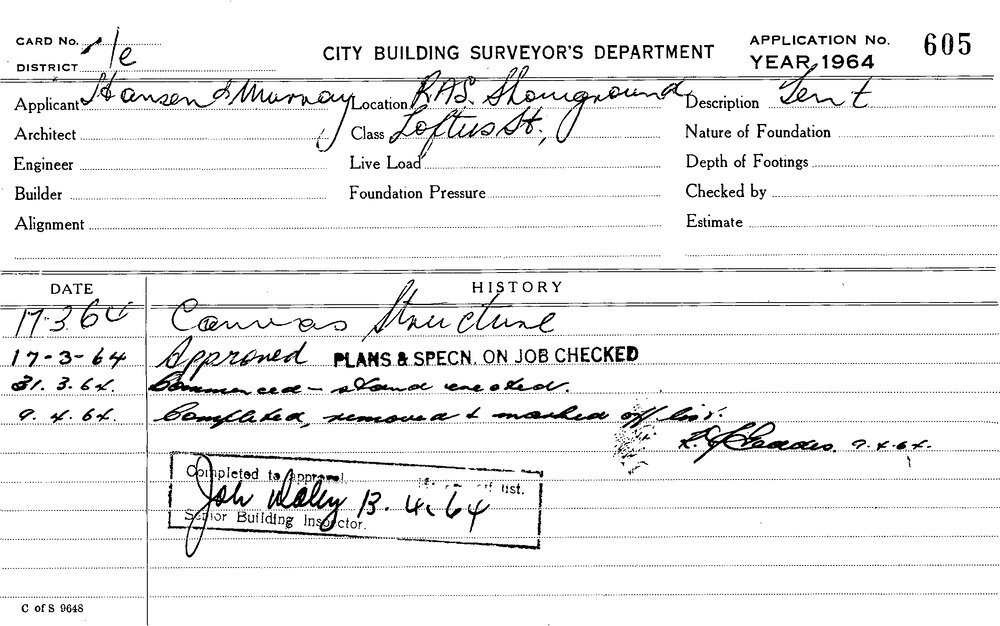 CARD No.
DISTRICT
CITY BUILDING SURVEYOR'S DEPARTMENT
APPLICATION No. 605
YEAR 1964
Applicant Hansen & Murray Location RAS. Showground Description Tent
Architect Class Loftus St., Nature of Foundation
Engineer Live Load Depth of Footings
Builder Foundation Pressure Checked by
Alignment Estimate
DATE HISTORY
17.3.64 Canvas Structure
17-3-64 Approved PLANS & SPECN. ON JOB CHECKED
31.3.64. Commenced - stand erected.
9.4.64. Completed, removed & marked off list.
9.4.64.
Completed to approval. off list.
13.4.64
Senior Building Inspector.
C of S 9648